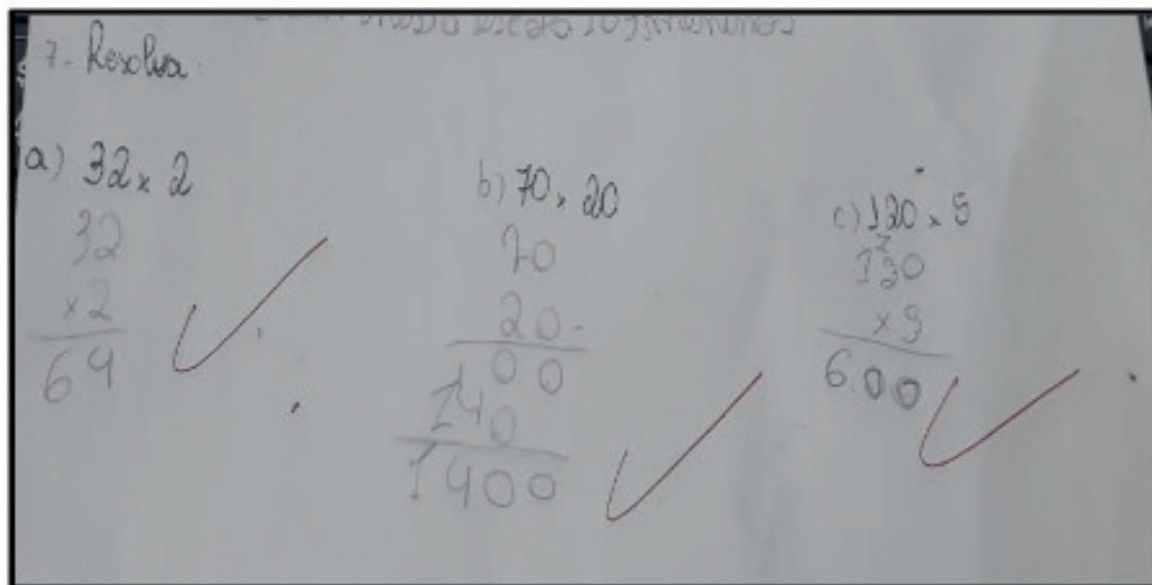 7. Resolva.
a) 32 x 2
32
x2
64
b) 70 x 20
70
20
00
140
1400
c) 120 x 5
2
120
x5
600